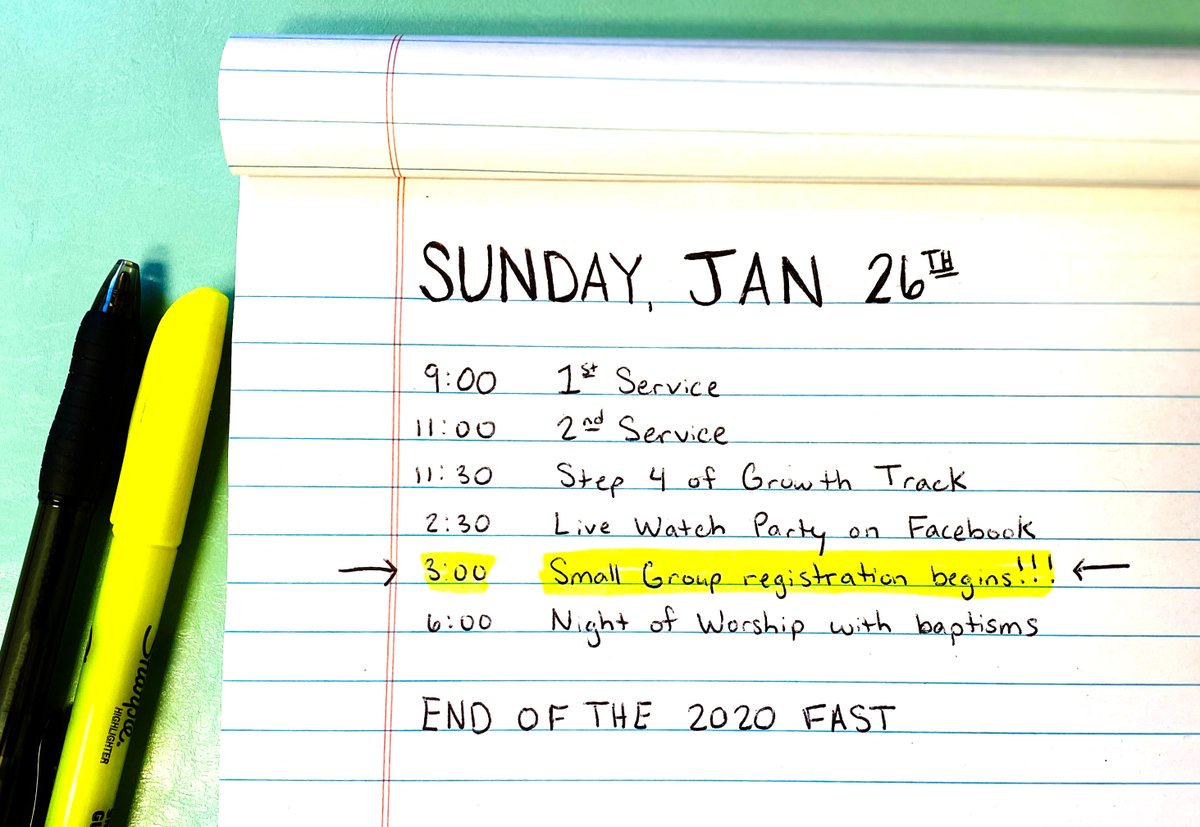 SUNDAY, JAN 26TH
9:00 1st Service
11:00 2nd Service
11:30 Step 4 of Growth Track
2:30 Live Watch Party on Facebook
→ 3:00 Small Group registration begins!!! ←
6:00 Night of Worship with baptisms
END OF THE 2020 FAST
Sharpie.
HIGHLIGHTER